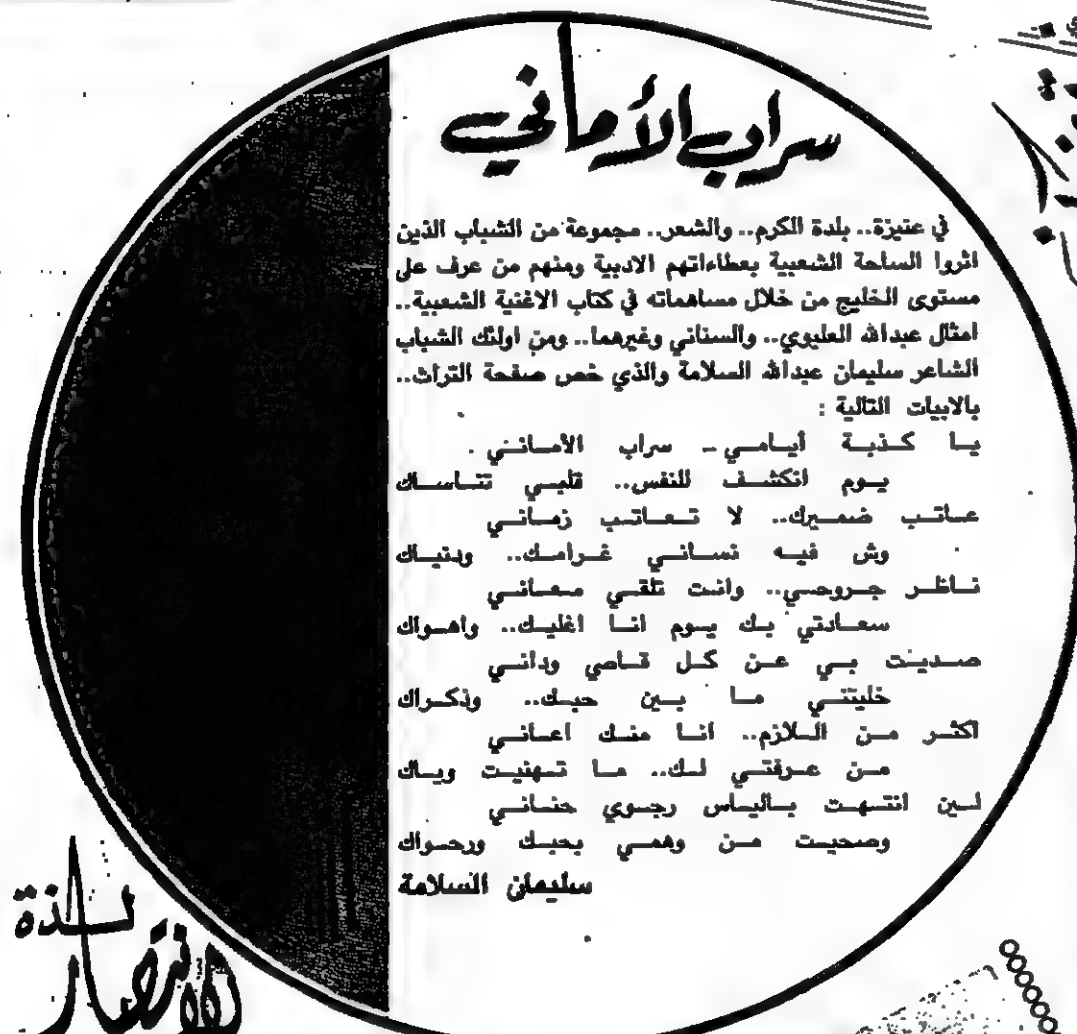 سراب الأماني
في عنيزة.. بلدة الكرم.. والشعر.. مجموعة من الشباب الذين
اثروا الساحة الشعبية بعطاءاتهم الادبية ومنهم من عرف على
مستوى الخليج من خلال مساهماته في كتاب الاغنية الشعبية..
امثال عبدالله العليوي.. والسناني وغيرهما.. ومن اولئك الشباب
الشاعر سليمان عبدالله السلامة والذي خص صفحة التراث..
بالابيات التالية :
يا كذبة أيامي ـ سراب الأماني .
يوم انكشف للنفس.. قلبي تناساك
عاتب ضميرك.. لا تعاتب زماني
وش فيه نساني غرامك.. ودنياك
ناظر جروحي.. وانت تلقي معاني
سعادتي بك يوم انا اغليك.. واهواك
صديت بي عن كل قاصي وداني
خليتني ما بين حبك.. وذكراك
اكثر من اللازم.. انا منك اعاني
من عرفتي لك.. ما تهنيت وياك
لين انتهت بالياس رجوي حناني
وصحيت من وهمي بحبك ورحواك
سليمان السلامة
لذة
الانتصار